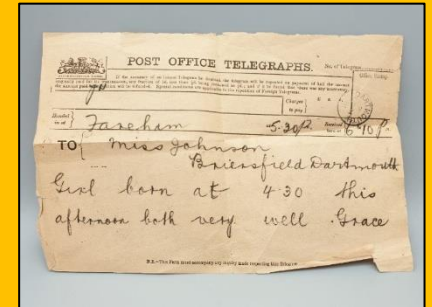 POST OFFICE TELEGRAPHS.
No. of Telegram
If the accuracy of an Inland Telegram be doubted, the telegram will be repeated on payment of half the amount
Charges to pay
Handed in at
Fareham
5.30p
Received here at
6.10p
TO
Miss Johnson
Briersfield Dartmouth
Girl born at 4-30 this
afternoon both very well. Grace
N.B.—This Form must accompany any inquiry made respecting this Telegram